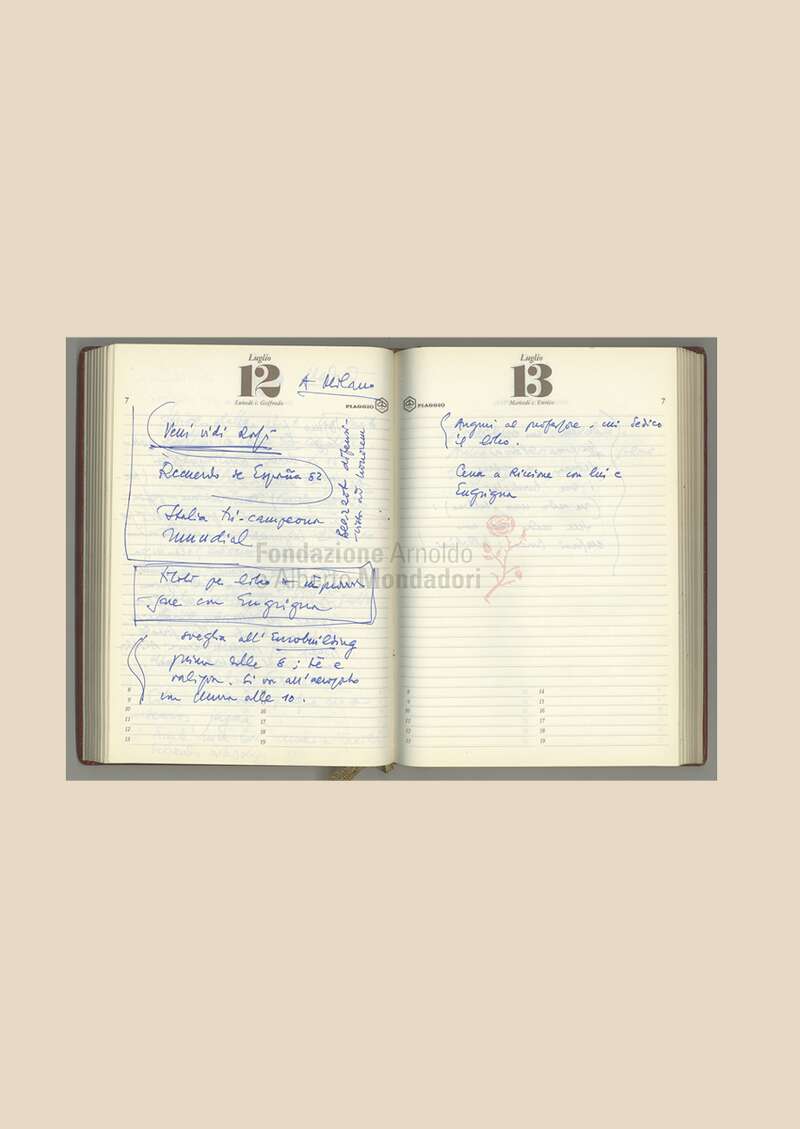 Luglio
12
Lunedì s. Goffredo
7
A Milano
PIAGGIO
Veni vidi
Recuerdo de España 82
Italia tri-campeona
mundial
Bearzot difensi-
vista ad honorem
per libro
con Eugrigna
sveglia all'Eurobuilding
prima delle 6; tè e
valigia. Si va all'aeroporto
alle 10.
8
9
10
11
12
13
16
17
18
19
Luglio
13
Martedì s. Enrico
7
PIAGGIO
Auguri al professore. mi dedico
il libro.
Cena a Riccione con lui e
Eugrigna
8
9
10
11
12
13
14
15
16
17
18
19
Fondazione Arnoldo
e Alberto Mondadori